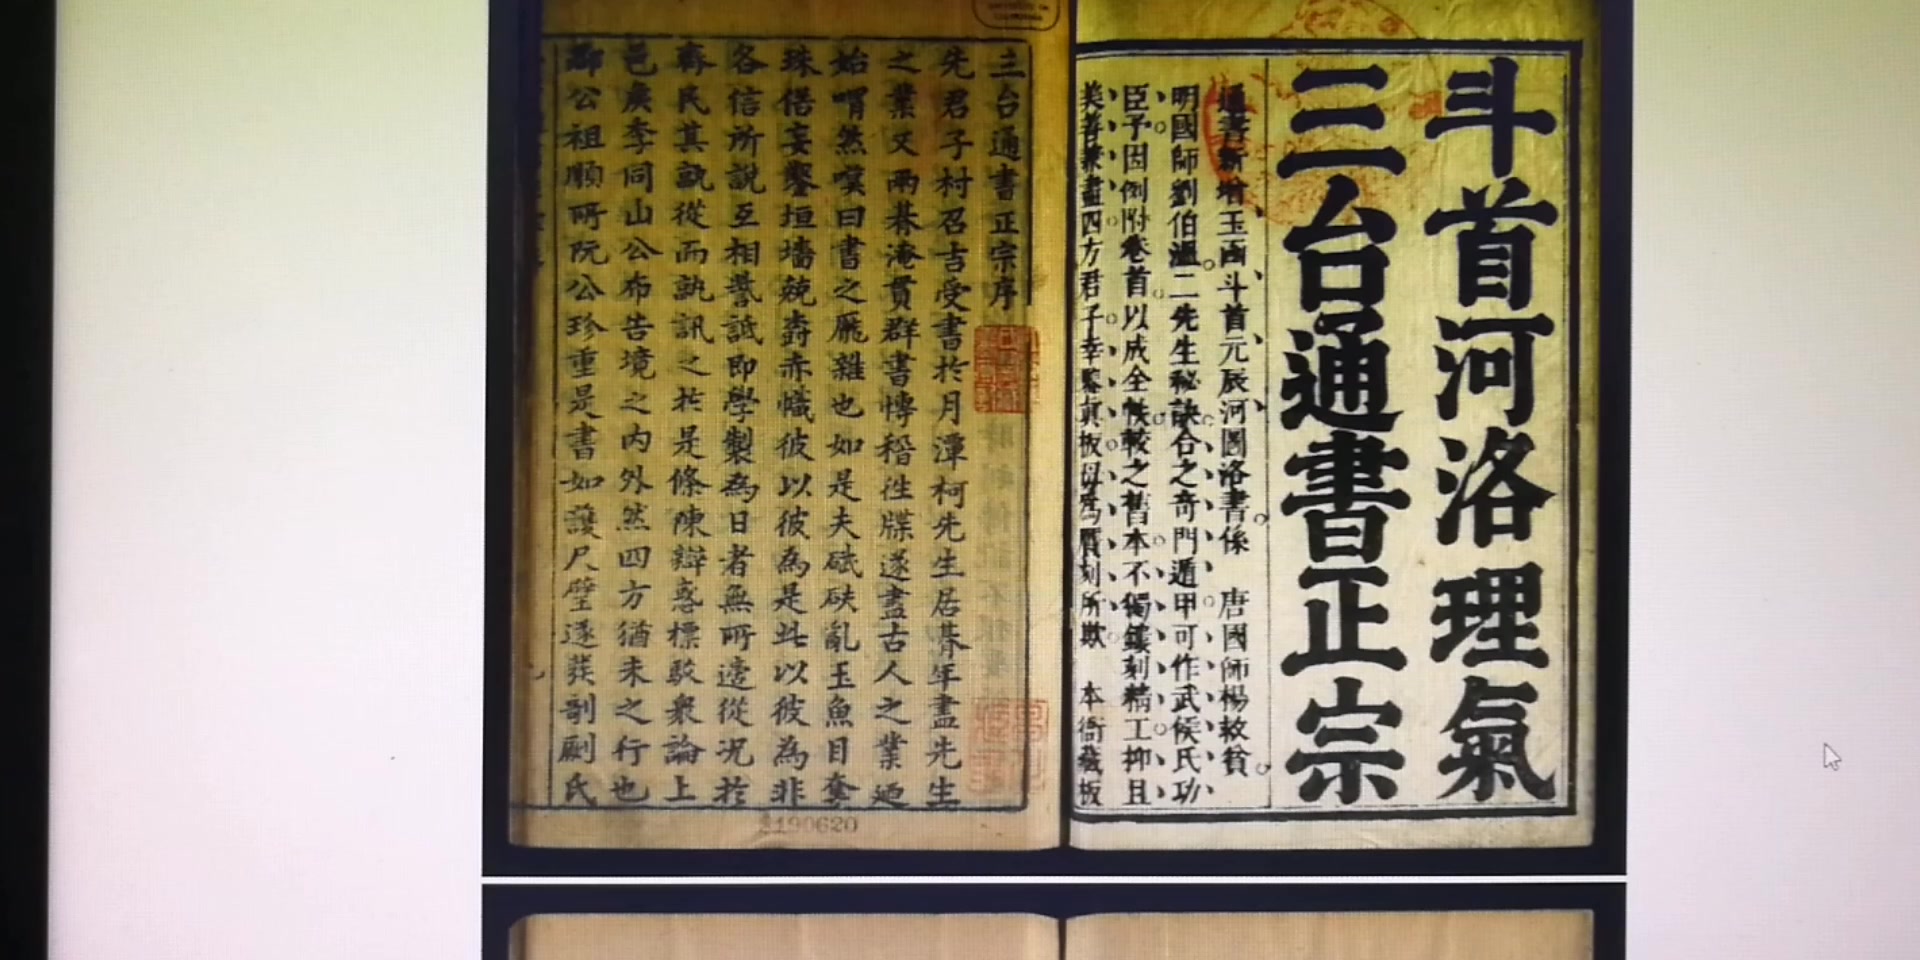 斗首河洛理氣
三台通書正宗
通書新增玉函斗首元辰河圖洛書係 唐國師楊救貧
明國師劉伯溫二先生秘訣合之奇門遁甲可作武侯氏功
臣予因例附卷首以成全帙較之舊本不獨鏤刻精工抑且
美善兼盡四方君子幸鑒真板毋為贗刻所欺 本衙藏板
三台通書正宗序
先君子村召吉受書於月潭柯先生居朞年盡先生
之業又兩朞淹貫群書博稽徃牒遂盡古人之業迺
始喟然嘆曰書之厖雜也如是夫碔砆亂玉魚目奪
珠倍妄鑿垣墻兢樹赤幟彼以彼為是此以彼為非
各信所說互相譏詆即學製為日者無所適從况扵
齊民其孰從而訊之扵是條陳辯惑標駁衆論上
邑矦李同山公布告境之内外然四方猶未之行也
郡公祖順所阮公珍重是書如護尺璧遂葊剞劂氏
2190620